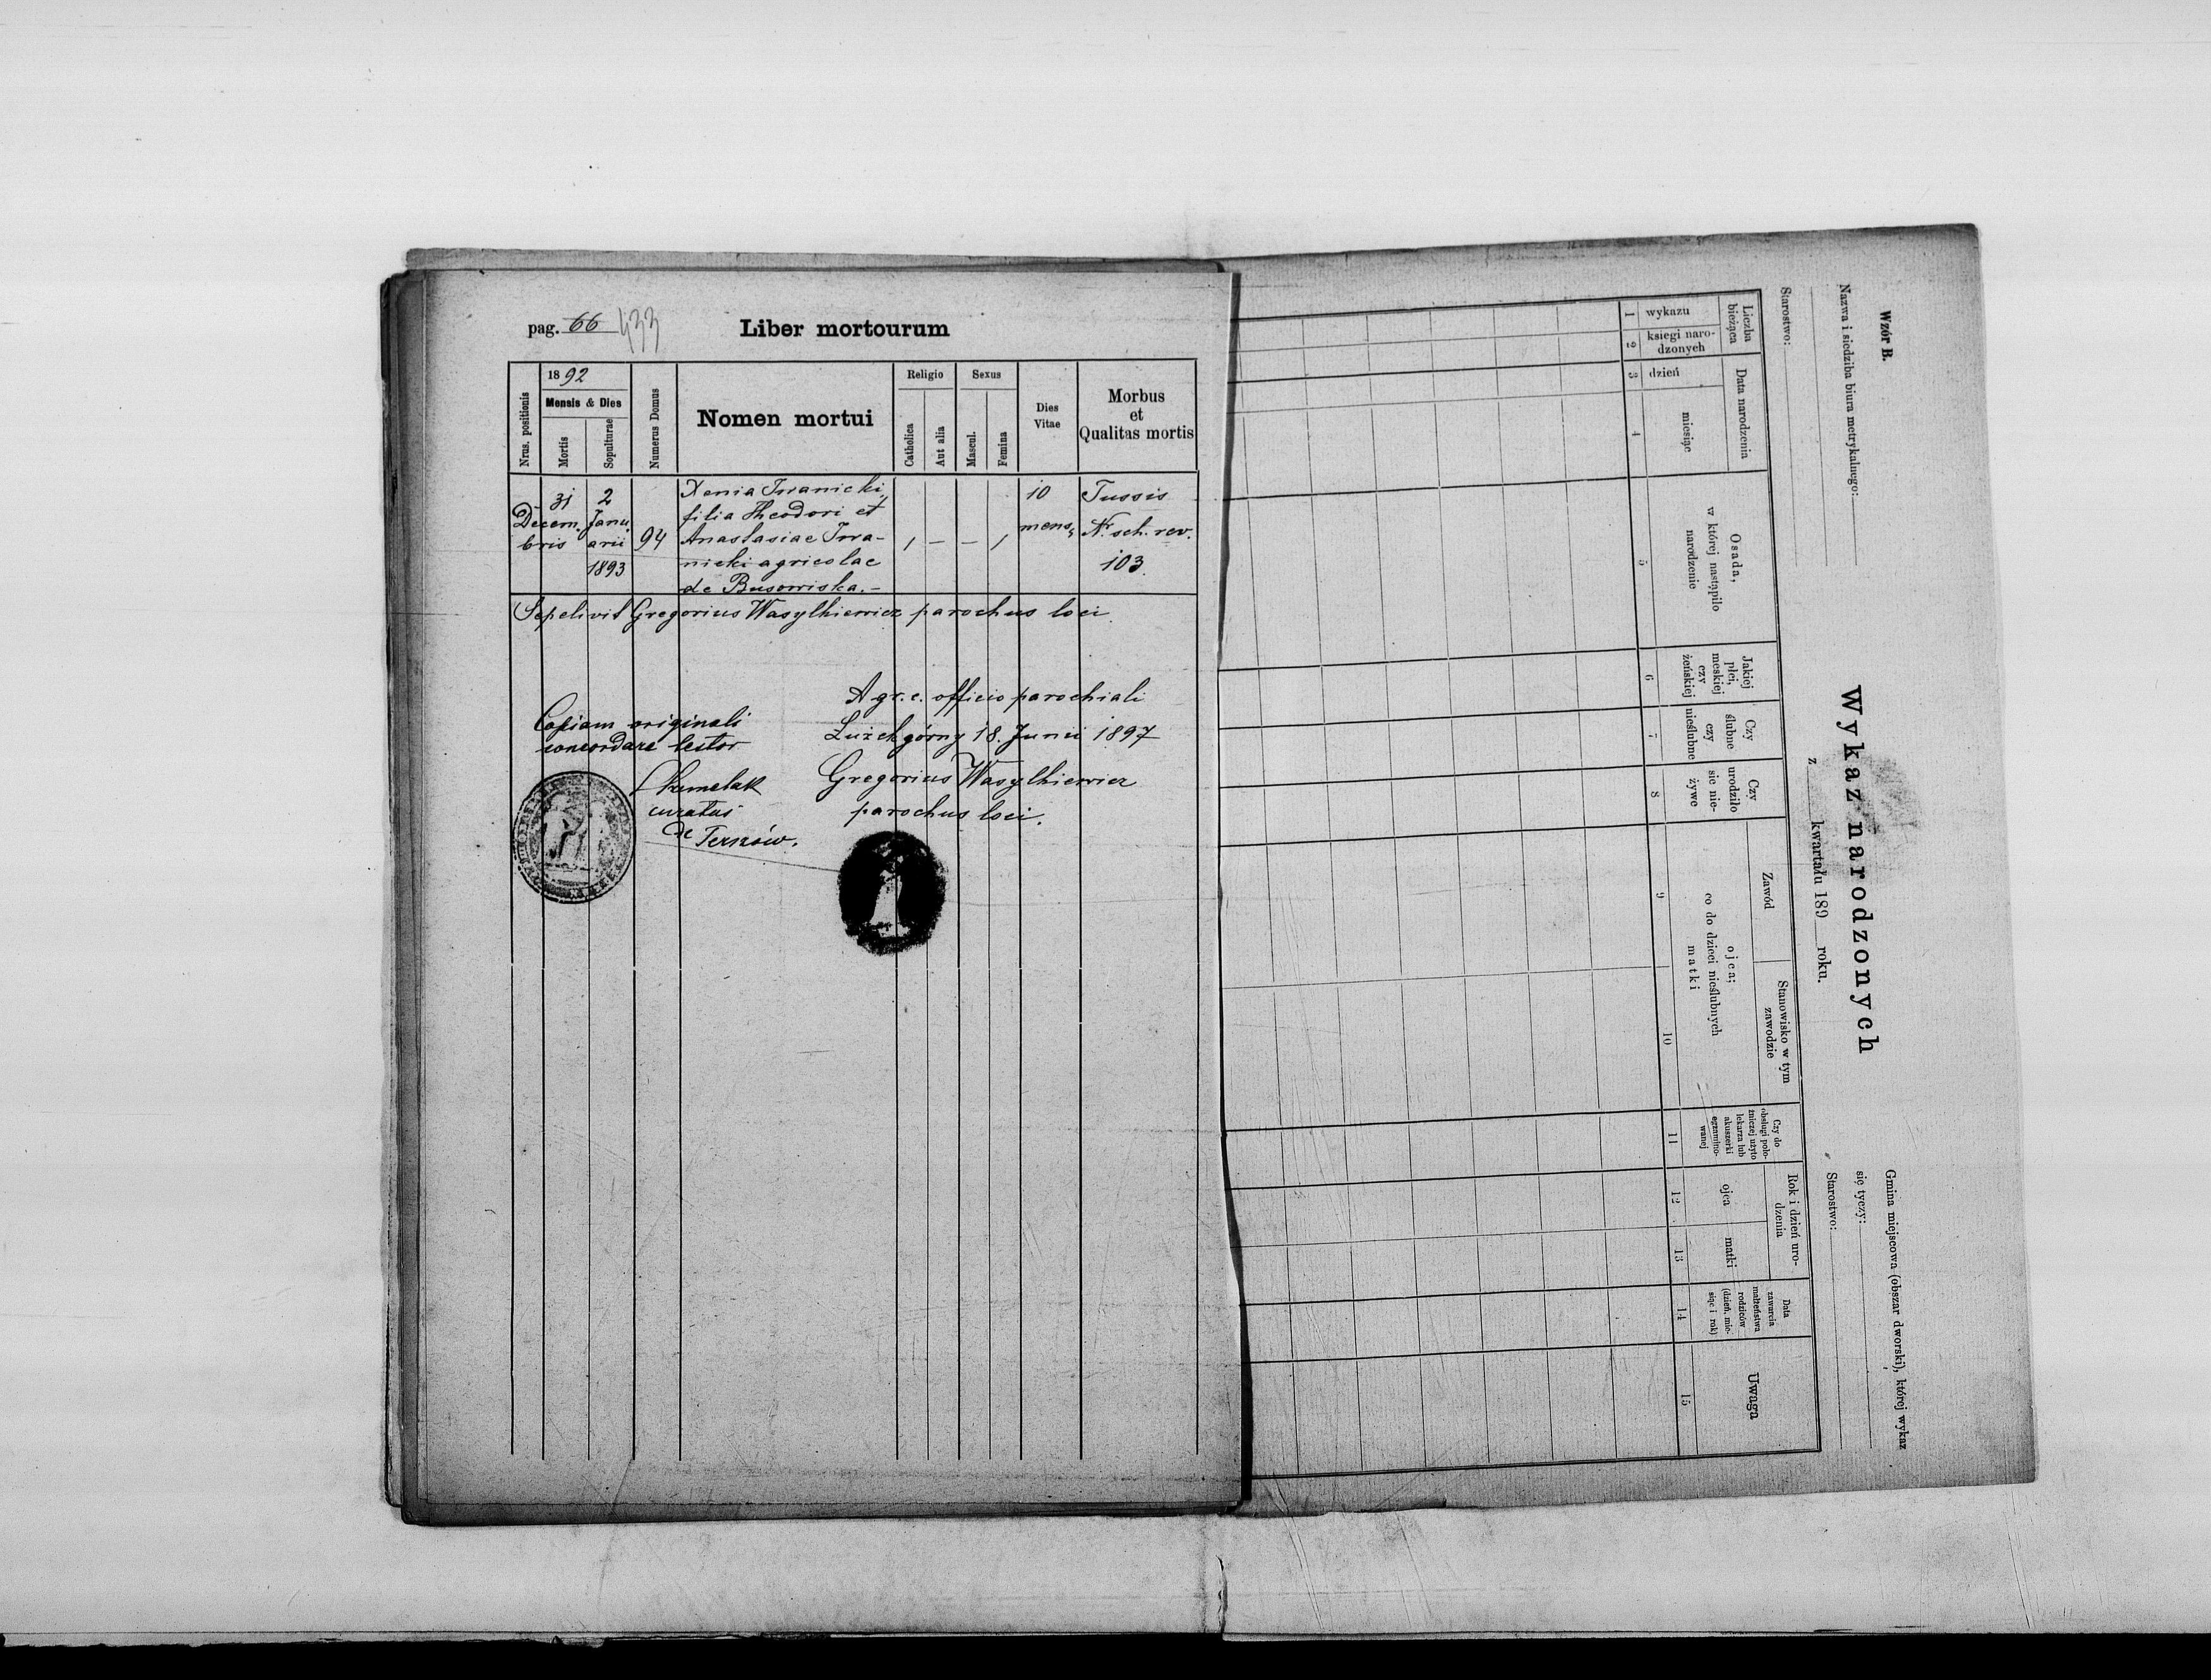 pag. 66 433
Liber mortourum
Nrus. positionis
1892
Mensis & Dies
Mortis
Sepulturae
Numerus Domus
Nomen mortui
Religio
Catholica
Aut alia
Sexus
Mascul.
Femina
Dies
Vitae
Morbus
et
Qualitas mortis
31
Decem.
bris
2
Janu
arii
1893
94
Xenia Iwanicki,
filia Theodori et
Anastasiae Iwa-
nicki agricolae
de Busowiska.-
/ - - /
10
mens,
Tussis
Nr. sch. rev.
103.
Sepelivit Gregorius Wasylkiewicz parochus loci.
Copiam originali
concordare testor
curatus
de Terszów.
A gr. c. officio parochiali
Łużek górny 18. Junii 1897
Gregorius Wasylkiewicz
parochus loci.
Wzór B.
Nazwa i siedziba biura metrykalnego:
Starostwo:
Wykaz narodzonych
z kwartału 189 roku.
Gmina miejscowa (obszar dworski), której wykaz
się tyczy:
Starostwo:
Liczba
bieżąca
wykazu
księgi naro-
dzonych
Data narodzenia
dzień
miesiąc
Osada,
w której nastąpiło
narodzenie
Jakiej
płci,
męskiej
czy
żeńskiej
Czy
ślubne
czy
nieślubne
Czy
urodziło
się nie-
żywe
Zawód
Stanowisko w tym
zawodzie
ojca;
co do dzieci nieślubnych
matki
Czy do
obsługi poło-
żniczej użyto
lekarza lub
akuszerki
egzamino-
wanej
Rok i dzień uro-
dzenia
ojca
matki
Data
zawarcia
małżeństwa
rodziców
(dzień, mie-
siąc i rok)
Uwaga
1 2 3 4 5 6 7 8 9 10 11 12 13 14 15